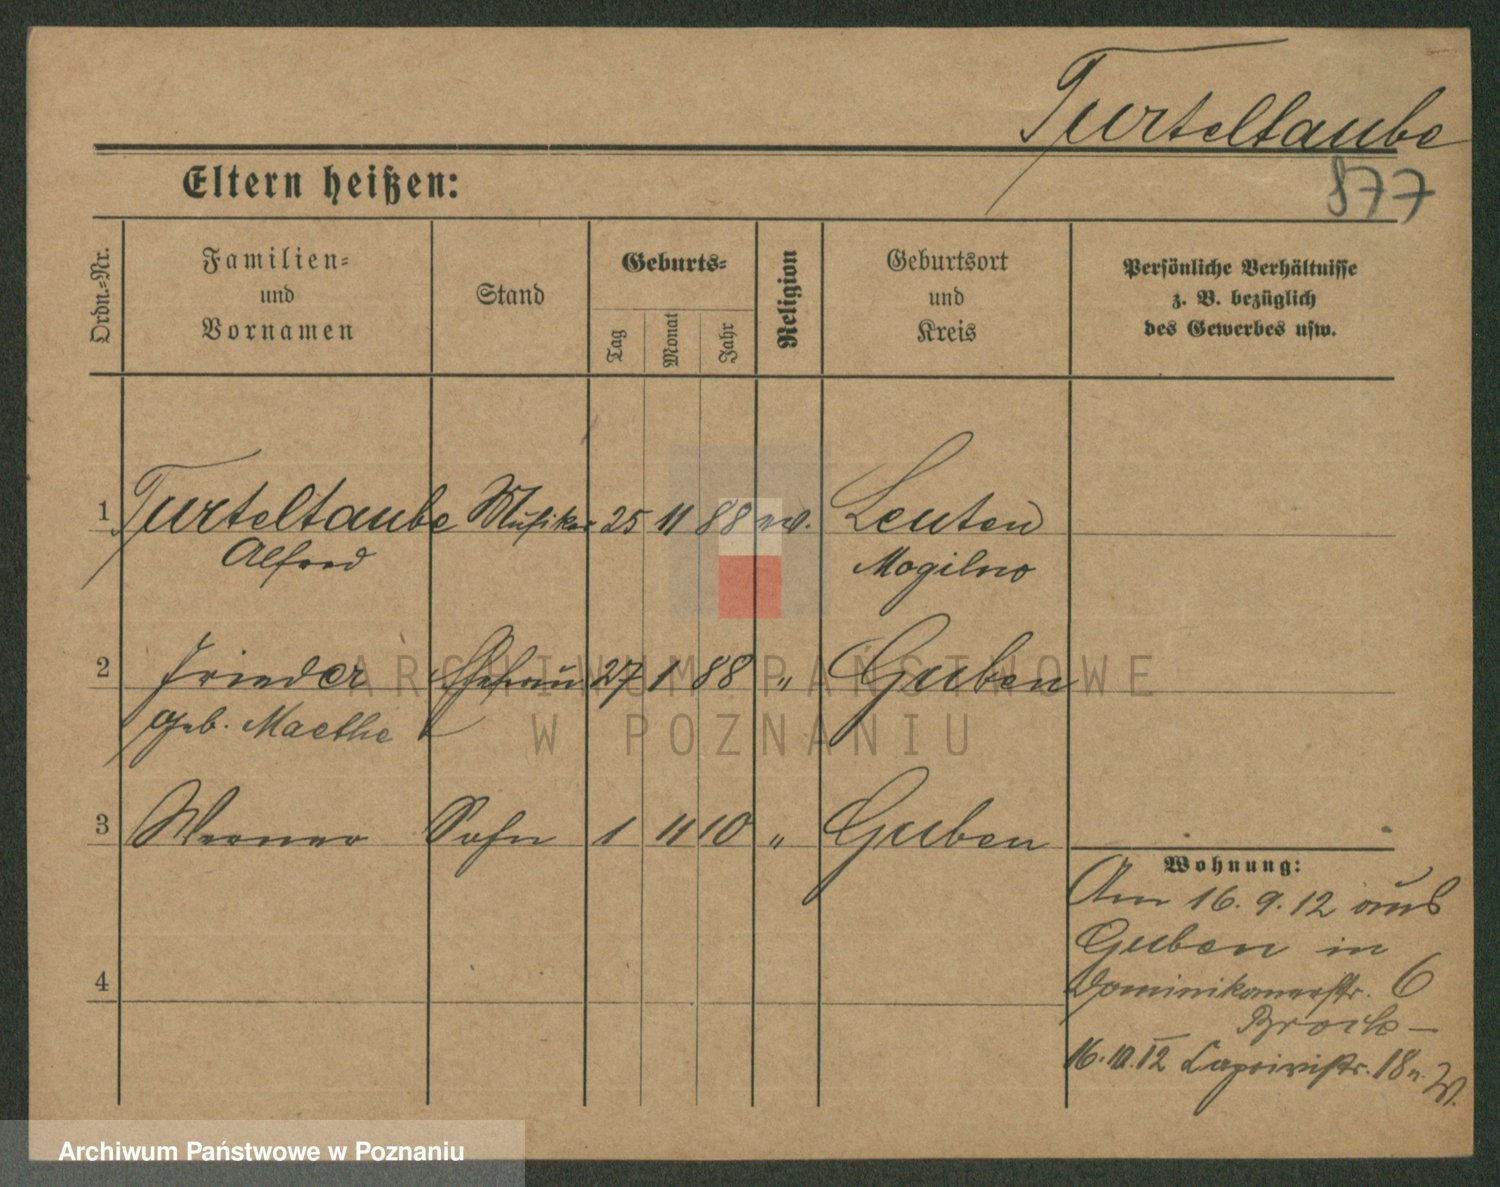 Turteltaube
877
Eltern heißen:
Ordn.-Nr.
Familien-
und
Vornamen
Stand
Geburts-
Tag
Monat
Jahr
Religion
Geburtsort
und
Kreis
Persönliche Verhältnisse
z. B. bezüglich
des Gewerbes usw.
1 Turteltaube Musiker 25 11 88 ev. Leuten
Alfred Mogilno
2 Ehefrau 27 1 88 " Guben
geb. Maethe
3 Werner Sohn 1 11 10 " Guben
4
Wohnung:
Am 16. 9. 12 aus
Guben in
Dominikanerstr. 6
16. 10. 12 Caprivistr. 18
ARCHIWUM PAŃSTWOWE
W POZNANIU
Archiwum Państwowe w Poznaniu